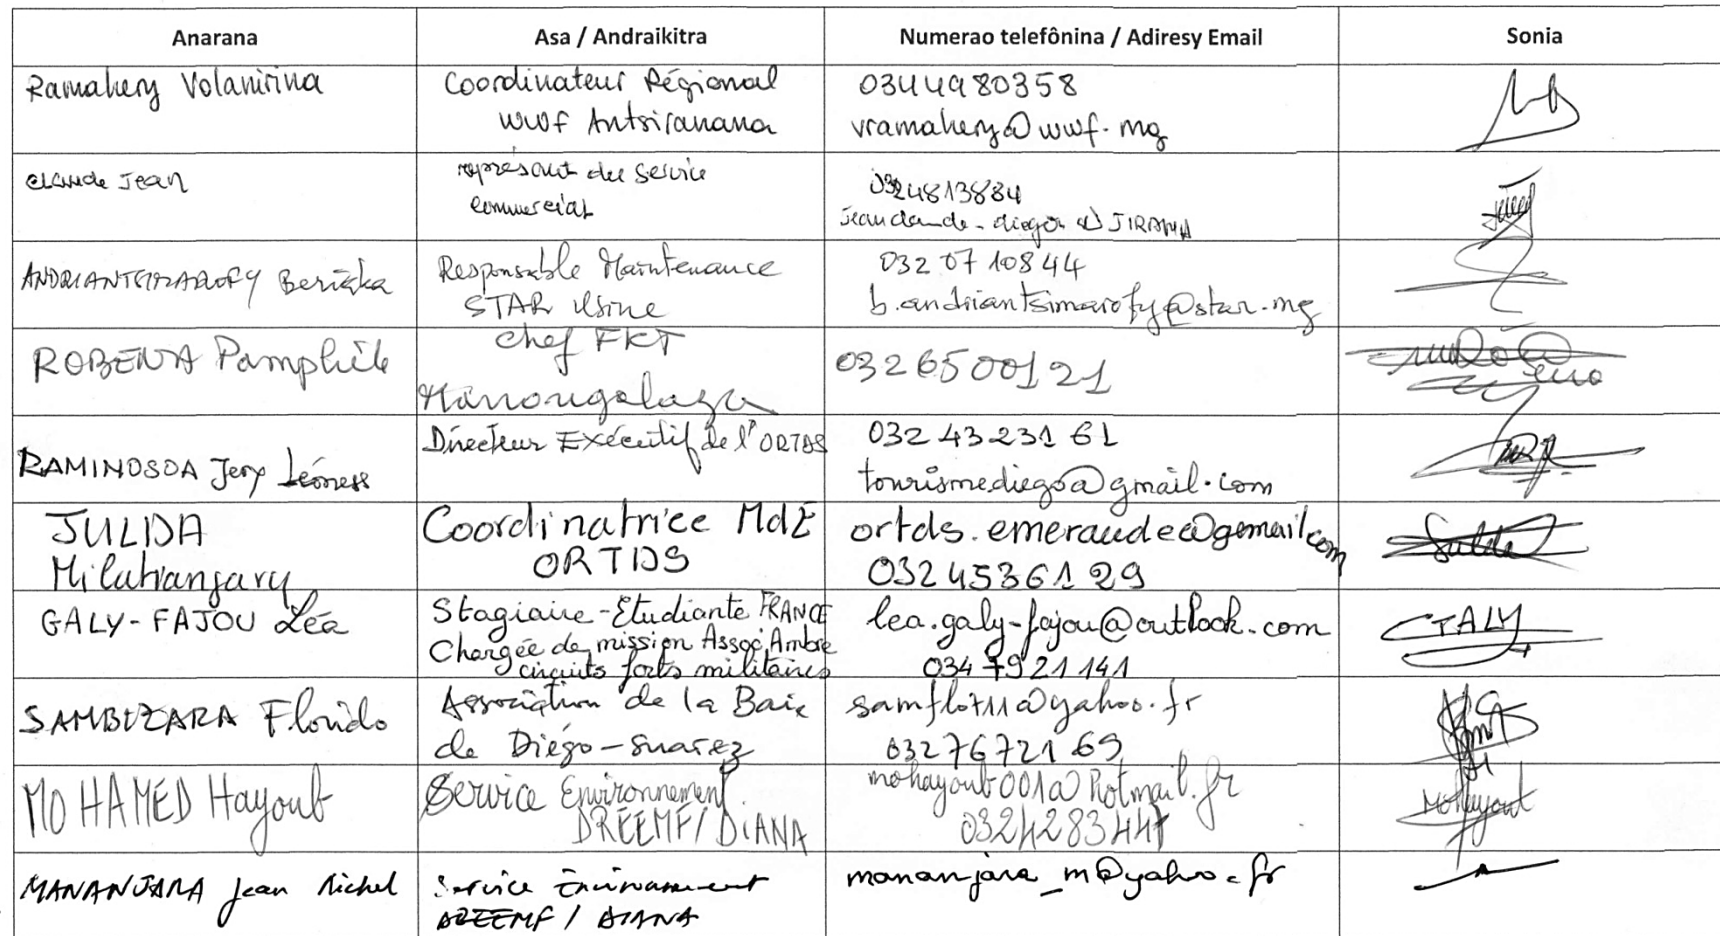 Anarana Asa / Andraikitra Numerao telefônina / Adiresy Email Sonia
Ramahery Volanirina
Coordinateur Régional
WWF Antsiranana
0344980358
vramahery@wwf.mg
Claude Jean
représant du Service
commercial
0324813884
jeanclaude-diego@JIRAMA
ANDRIANTSIMAROFY Beriaka
Responsable Maintenance
STAR Usine
032 07 108 44
b.andriantsimarofy@star.mg
ROBENA Pamphile
Chef FKT
Manongalaza
0326500121
RAMINOSOA Jery Léoness
Directeur Exécutif de l'ORTDS
032 43 231 61
tourismediego@gmail.com
JULIDA
Milatranjary
Coordinatrice MdE
ORTDS
ortds.emeraude@gemail.com
0324536129
GALY-FAJOU Léa
Stagiaire-Etudiante FRANCE
Chargée de mission Assoç Ambre
circuits forts militaires
lea.galy-fajou@outlook.com
034 79 21 141
GALY
SAMBIZARA Florido
Association de la Baie
de Diégo-Suarez
samflo711@yahoo.fr
0327672169
MOHAMED Hayoub
Service Environnement
DREEMF/DIANA
mohayoub001@hotmail.fr
0324283447
Mohayoub
MANANJARA Jean Michel
Service Environnement
DREEMF / DIANA
mananjara_m@yahoo.fr